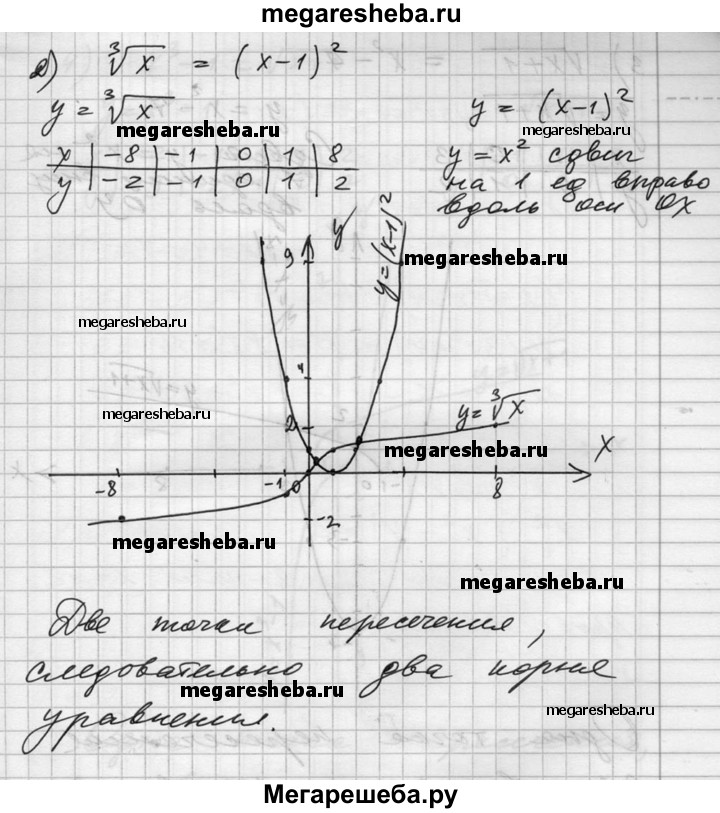 megaresheba.ru
2) ∛x = (x-1)²
y = ∛x y = (x-1)²
megaresheba.ru megaresheba.ru
x | -8 | -1 | 0 | 1 | 8 y = x² сдвиг
y | -2 | -1 | 0 | 1 | 2 на 1 ед вправо
вдоль оси OX
y
y=(x-1)²
9
megaresheba.ru
megaresheba.ru
4
megaresheba.ru
y=∛x
2
megaresheba.ru
x
-8 -1 0 8
-2
megaresheba.ru
megaresheba.ru
Две точки пересечения,
следовательно два корня
megaresheba.ru
megaresheba.ru
уравнения.
Мегарешеба.ру